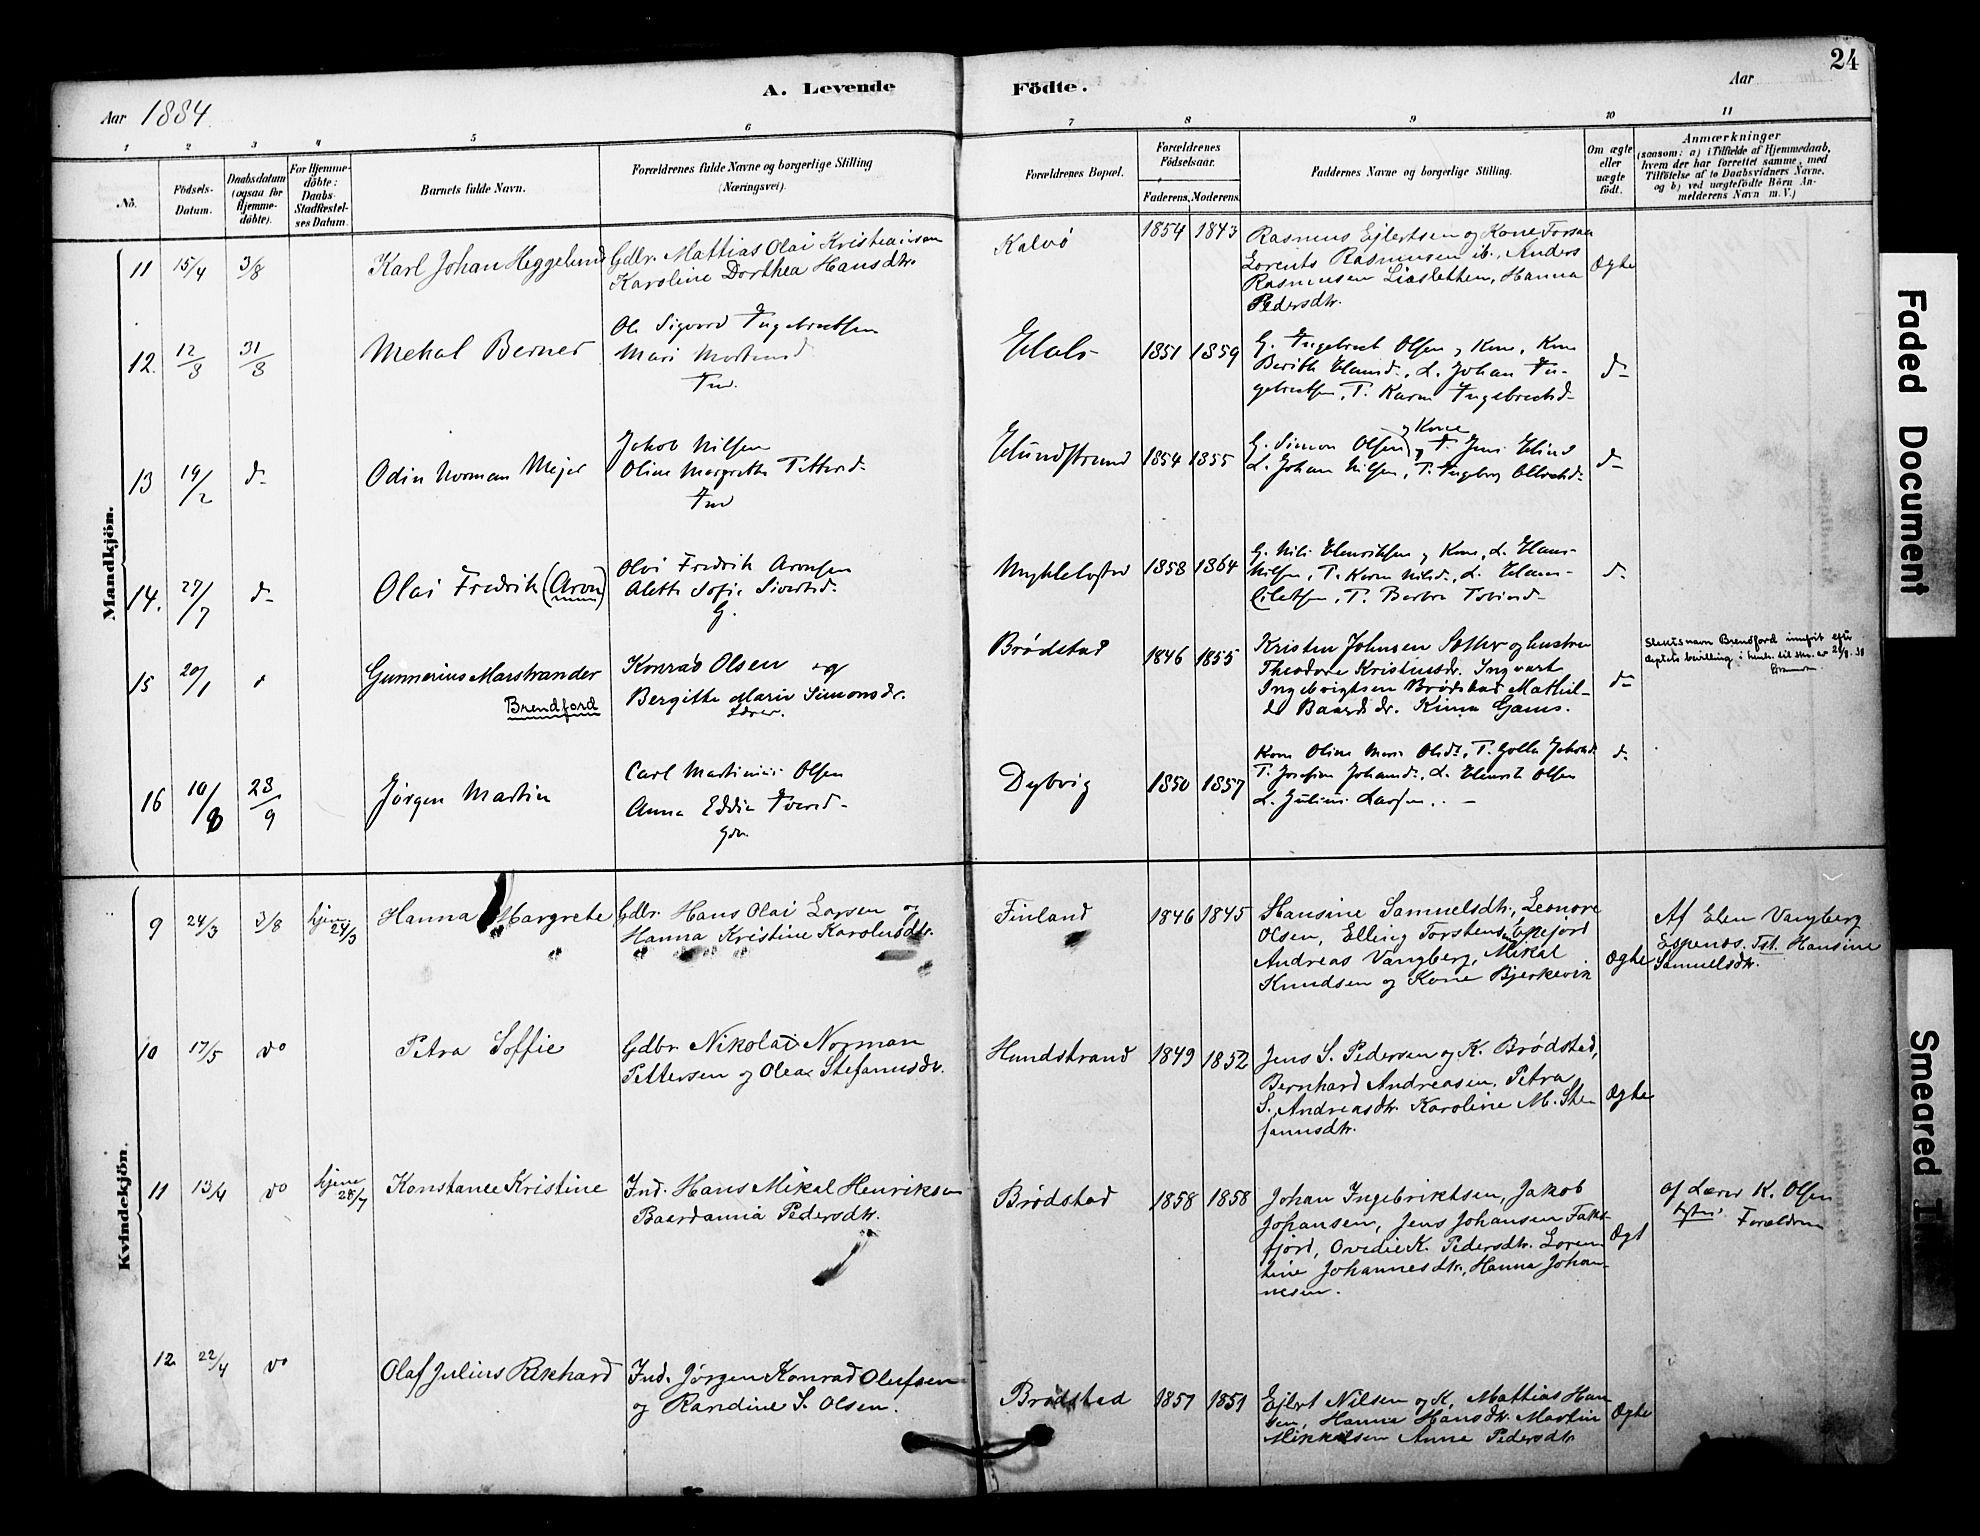 24
A. Levende Födte.
Aar 1884
Aar
1 2 3 4 5 6 7 8 9 10 11
No.
Födsels-
Datum.
Daabsdatum
(ogsaa for
Hjemme-
döbte).
For Hjemme-
döbte:
Daabs-
Stadfæstel-
ses Datum.
Barnets fulde Navn.
Forældrenes fulde Navne og borgerlige Stilling
(Næringsvei).
Forældrenes Bopæl.
Forældrenes
Födselsaar.
Faderens. Moderens.
Faddernes Navne og borgerlige Stilling.
Om ægte
eller
uægte
födt.
Anmærkninger
(saasom: a) i Tilfælde af Hjemmedaab,
hvem der har forrettet samme, med
Tilföielse af to Daabsvidners Navne,
og b) ved uægtefödte Börn An-
melderens Navn m. V.)
Mandkjön.
11 15/4 3/8
Karl Johan Heggelund
Gdbr. Mattias Olai Kristiansen
Karoline Dorthea Hansdtr.
Kalvö
1854 1843
Rasmus Ejlertsen og Kone Forsaa
Lorents Rasmussen ib., Anders
Rasmussen Liasletten, Hanna
Pedersdtr.
Ægte
12. 12/3 31/8
Mekal Berner
Ole Sigvard Ingebrectsen
Mari Mortensd
Ind.
1851 1859
G. Ingebrect Olsen og Kone, Kone
Berith Hansd., L. Johan In-
gebrectsen, T. Karen Ingebrectsd-
d-
13 19/2 d-
Odin Norman Mejer
Jakob Nilsen
Oline Margrethe Pettersd-
Ind
Hundstrand
1854 1855
og Kone
G. Simon Olsen
L. Johan Nilsen, P. Ingeborg
d-
14. 27/7 d-
Olai Fredrik (Aron)
Olai Fredrik Aronsen
Alette Sofie Sivertsd-
G.
1858 1864
G. Nils Henriksen og Kone, L. Hans
Nilsen, P. Karen Nilsd-, L. Hans
d-
15 20/1
Gunnerius Marstrander
Brendford
Konrad Olsen og
Bergitte Marie Simonsdr.
Lærer.
Brödstad
1846 1855
Kristen Johnsen Sæther og hustru
Theodore Kristensdr. Ingvart
Ingebrigtsen Brödstad Mathil-
de Baardsdr. Kinna Gams.
d-
Slektsnavn Brendford innfört efter
16 10/8 28/9
Jörgen Martin
Carl Martinius Olsen
Anna Eddia Iversd-
Gdr.
Dybvig
1850 1857
Kone Oline Marie Olsd-, P. Golla Jakobsd-
P. Josefine Johansd-, L. Henrik Olsen
L. Julius Larsen.. -
d-
Kvindekjön.
9 24/3 3/8 hjem. 24/3
Hanna Margrete
Gdbr. Hans Olai Larsen og
Hanna Kristine Karolusdtr.
Finland
1846 1845
Hansine Samuelsdtr., Leonore
Olsen, Elling Torstensen
Andreas Vangberg, Mikal
Knudsen og Kone Bjerkevik
Ægte
Af Elen Vangberg
Espenes. Tst. Hansine
Samuelsdtr.
10 17/5 do
Petra Soffie
Gdbr. Nikolai Norman
Pettersen og Olea Stefanusdr.
Hundstrand
1849 1852
Jens S. Pedersen og K. Brödsted,
Bernhard Andreasen, Petra
S. Andreasdtr. Karoline M. Ste
fanusdtr.
Ægte
11 13/4 do hjem. 28/7
Konstance Kristine
Ind. Hans Mikal Henriksen
Baardanna Pedersdtr.
Brödstad
1858 1858
Johan Ingebriktsen, Jakob
Johansen, Jens Johansen Faks-
fjord, Ovedie K. Pedersdtr. Loren
tine Johannesdtr., Hanna Johan-
nesen.
Ægt
af Lærer K. Olsen
Forældrene
12. 22/4 do
Olaf Julius Rikhard
Ind. Jörgen Konrad Olufsen
og Randine S. Olsen.
Brödstad
1857 1851
Ejlert Nilsen og K., Mattias Han
sen, Hanna Hansdtr. Martin
Mikkelsen Anne Pedersdtr.
Ægte
Faded Document
Smeared